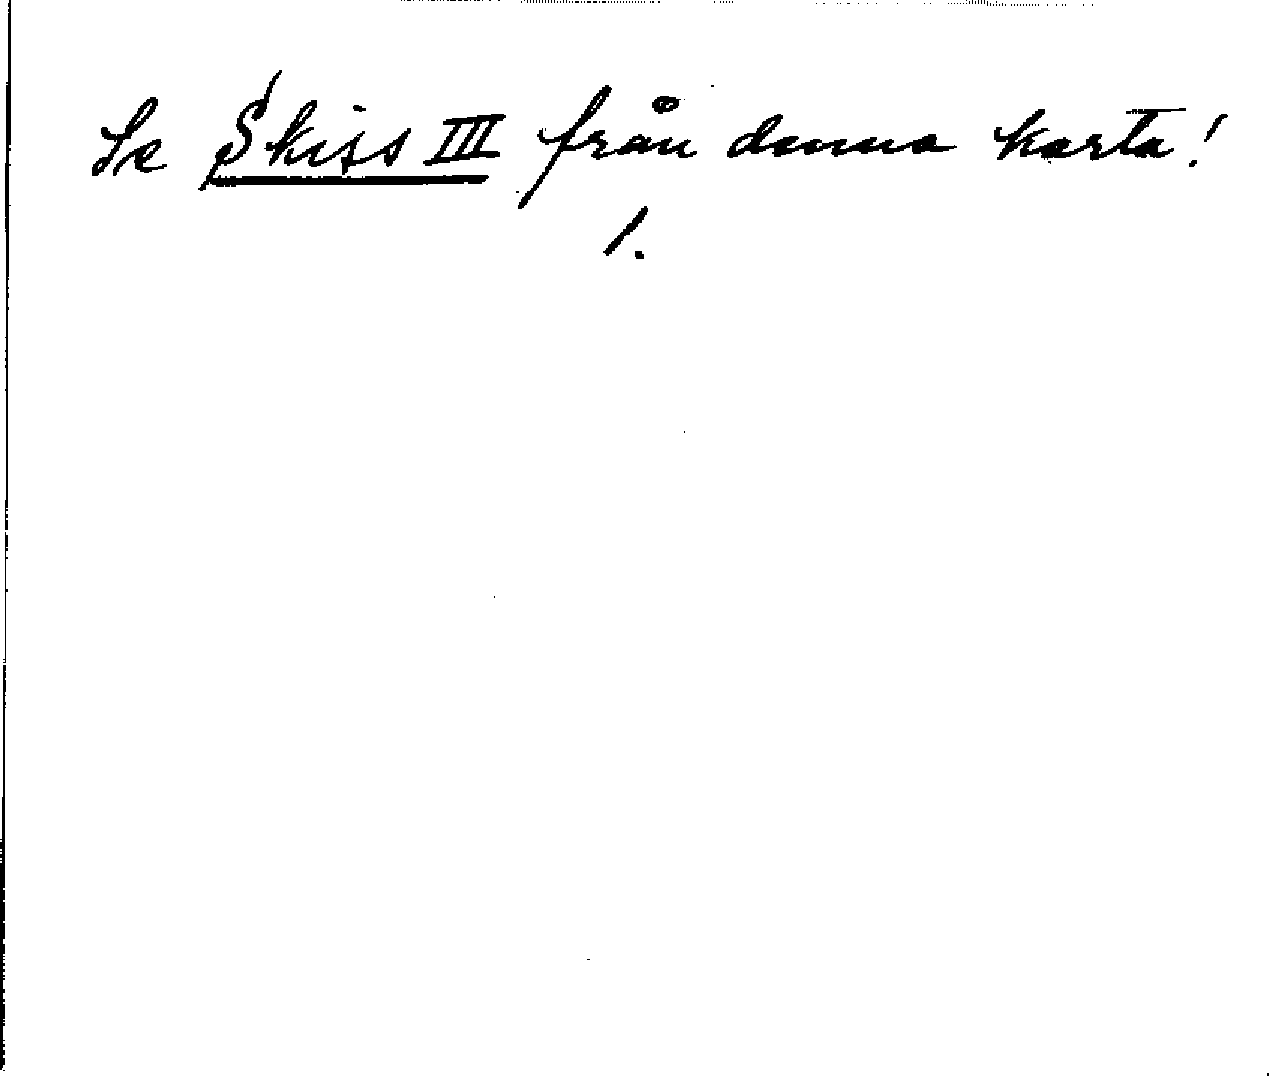 Se Skiss III från denna karta!
1.